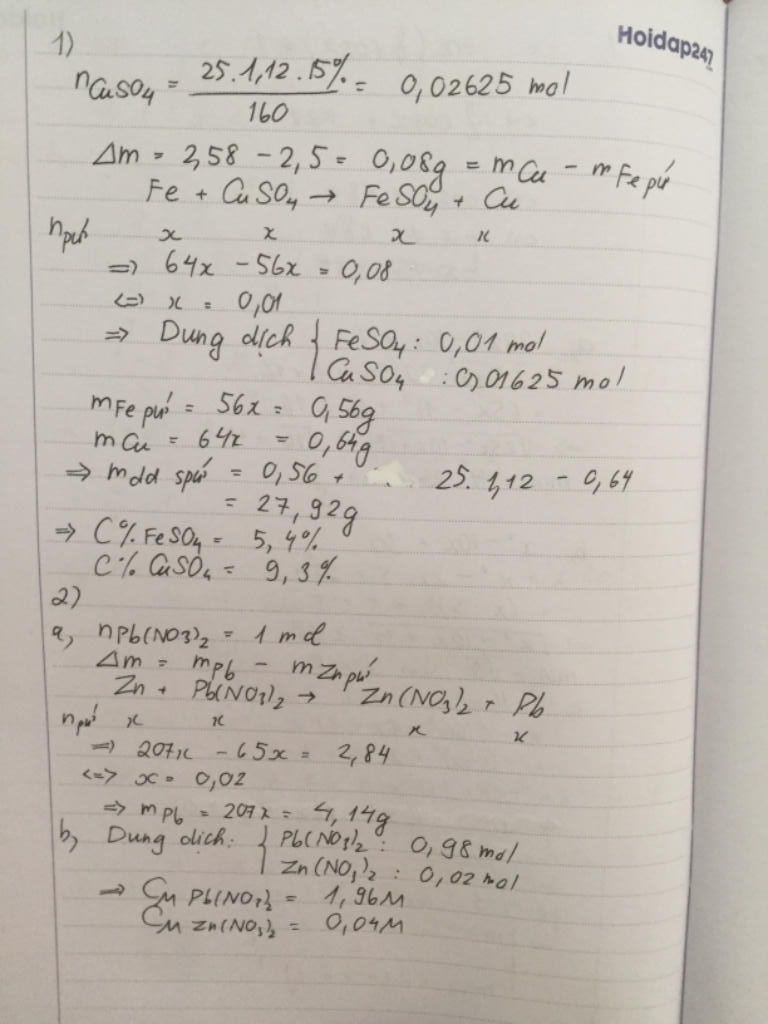 Hoidap247
1)
nCuSO4 = 25.1,12.15% / 160 = 0,02625 mol
Δm = 2,58 - 2,5 = 0,08g = mCu - mFe pứ
Fe + CuSO4 → FeSO4 + Cu
npứ x x x x
=> 64x - 56x = 0,08
<=> x = 0,01
=> Dung dịch { FeSO4 : 0,01 mol
CuSO4 : 0,01625 mol
mFe pứ = 56x = 0,56g
mCu = 64x = 0,64g
=> mdd spứ = 0,56 + 25.1,12 - 0,64
= 27,92g
=> C% FeSO4 = 5,4%
C% CuSO4 = 9,3%
2)
a, nPb(NO3)2 = 1 mol
Δm = mPb - mZn pứ
Zn + Pb(NO3)2 → Zn(NO3)2 + Pb
npứ x x x x
=> 207x - 65x = 2,84
<=> x = 0,02
=> mPb = 207x = 4,14g
b, Dung dịch: { Pb(NO3)2 : 0,98 mol
Zn(NO3)2 : 0,02 mol
=> CM Pb(NO3)2 = 1,96M
CM Zn(NO3)2 = 0,04M